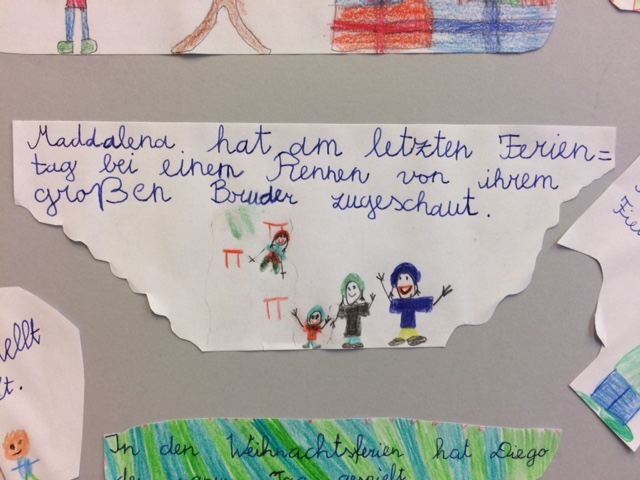 Maddalena hat am letzten Ferien=
tag bei einem Rennen von ihrem
großen Bruder zugeschaut.
In den Weihnachtsferien hat Diego